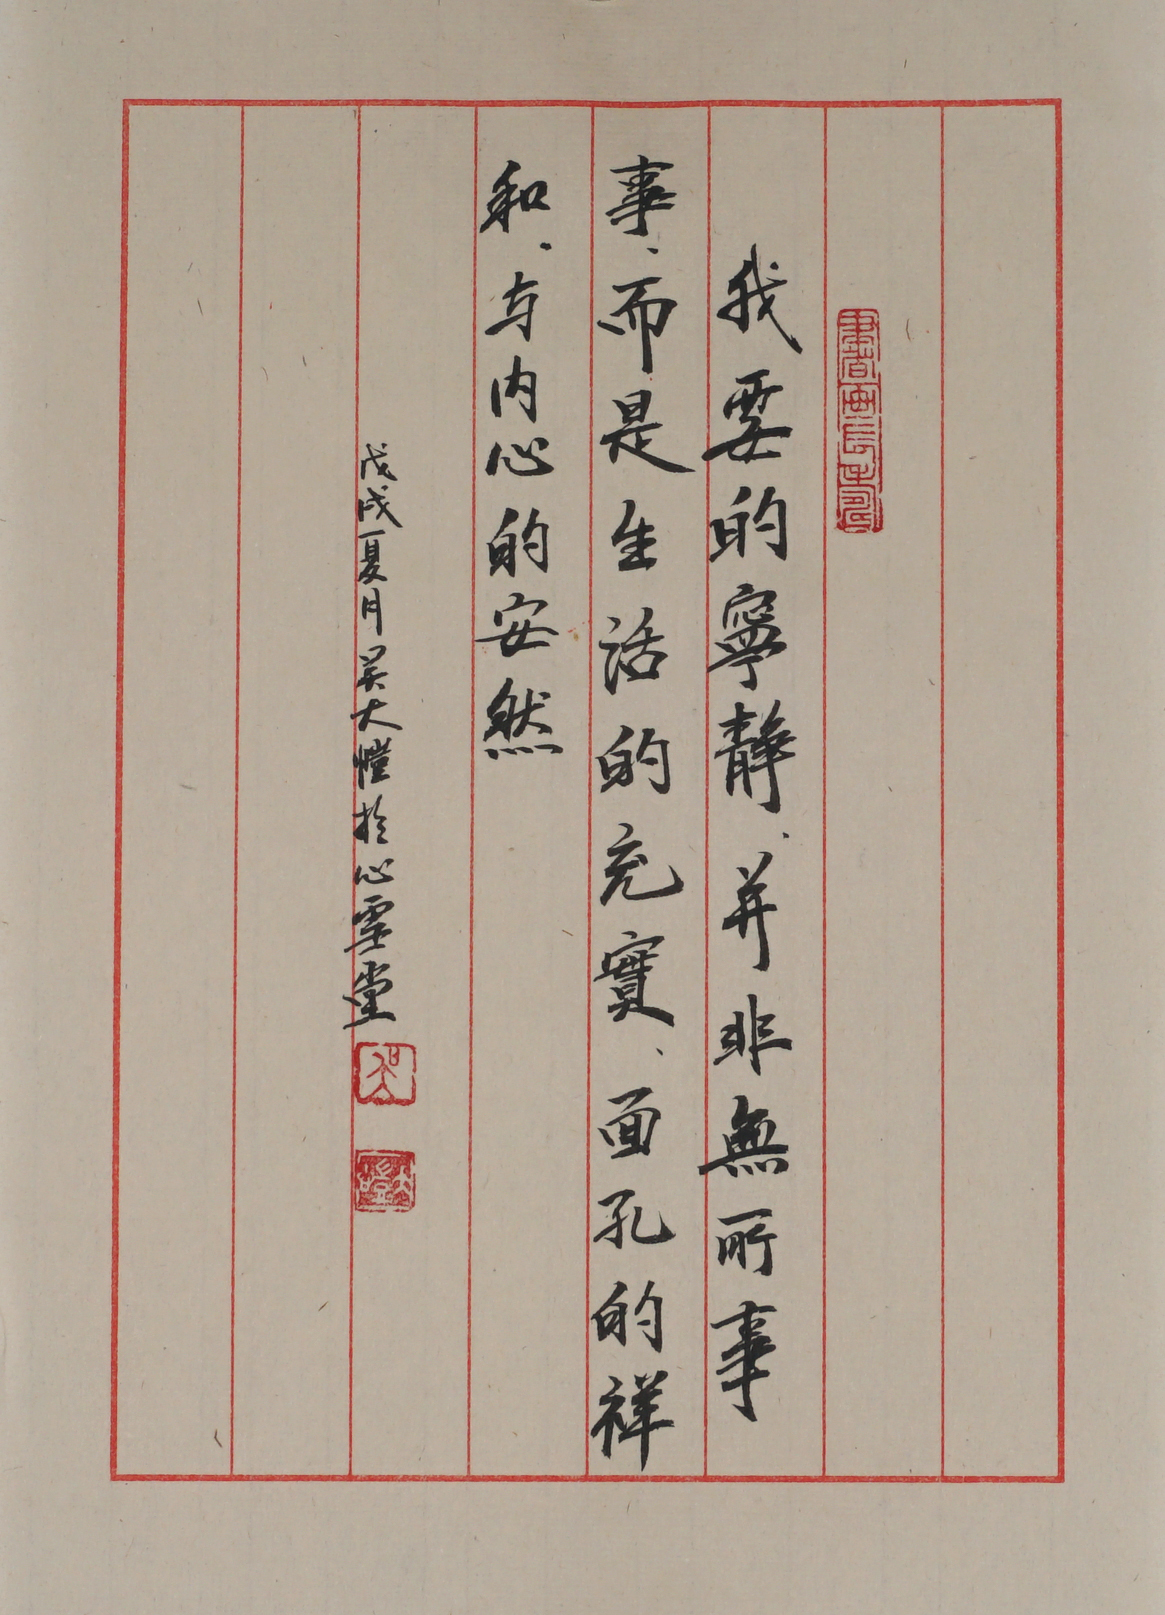 我要的寧静、并非無所事
事、而是生活的充實、面孔的祥
和、与内心的安然
戊戌夏月吴大愷於心雲堂